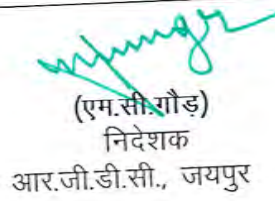 (एम.सी.गौड़)
निदेशक
आर.जी.डी.सी., जयपुर